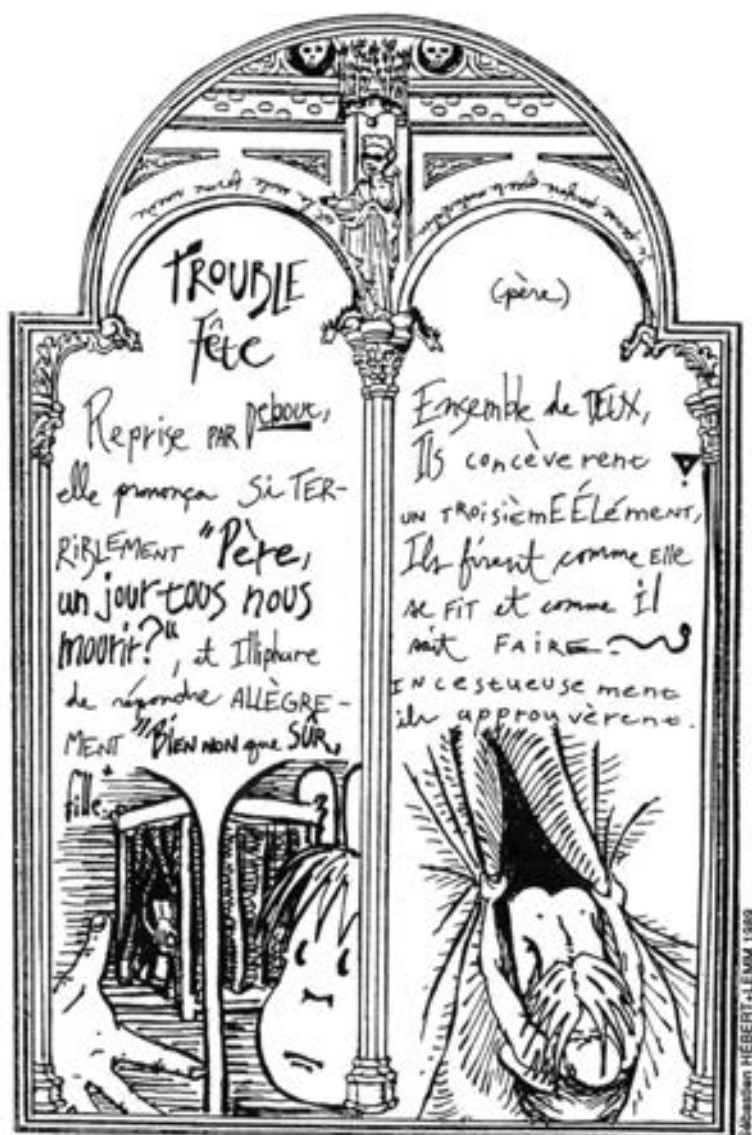 et la seule forme
je pense
TROUBLE
Fête
Reprise PAR Debout,
elle prononça Si TER-
RiBLEMENT "Père,
un jour tous nous
mourir?", et Illiphure
de répondre ALLÈGRE-
MENT "BiEN NON que SÛR,
fille."
(père)
Ensemble de DEUX,
Ils concèverent
UN TROiSièmE ÉÉLéMENT,
Ils firent comme ELLE
se FIT et comme il
sait FAIRE.
INCESTUEUSEment
ils approuvèrent.
Sébastien HÉBERT+LLEMM 1989